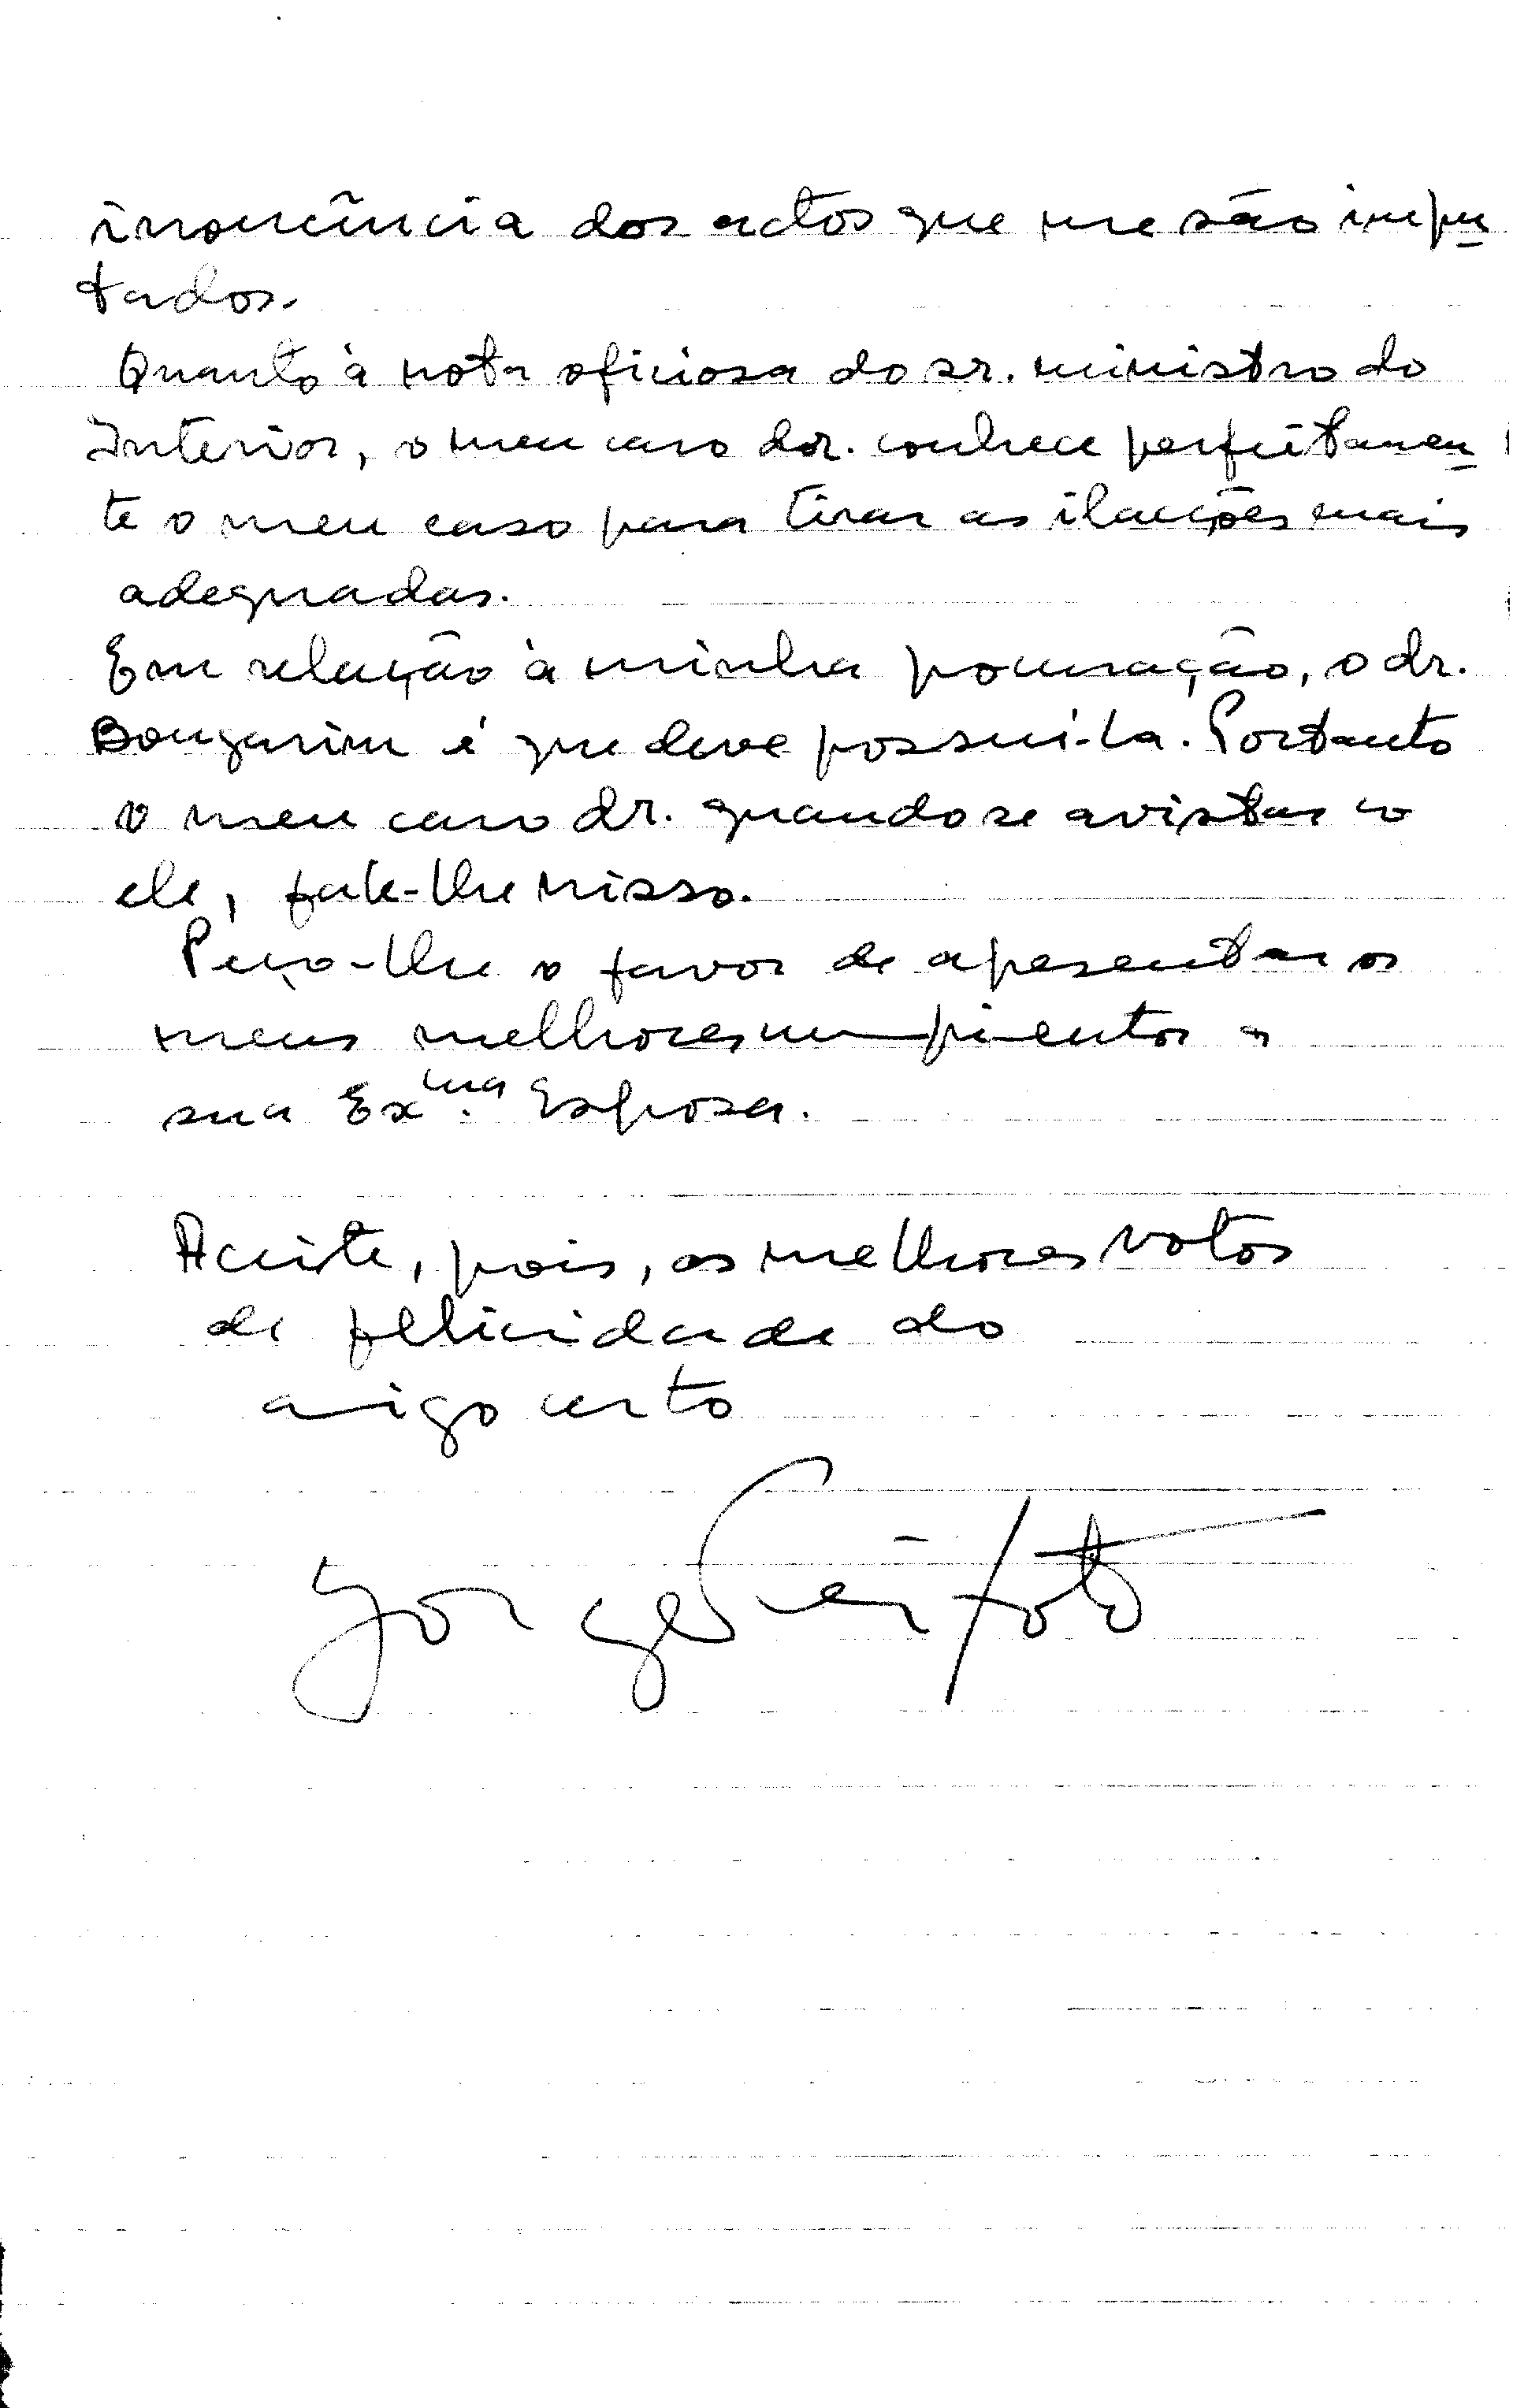 inocência dos actos que me são impu
tados.
Quanto à nota oficiosa do sr. ministro do
Interior, o meu caro dr. conhece perfeitamen
te o meu caso para tirar as ilações mais
adequadas.
Em relação à minha pocuração, o dr.
é que deve possuí-la. Portanto
o meu caro dr. quando se avistar c
ele, fale-lhe nisso.
Peço-lhe o favor de apesentar os
meus melhores cumpimentos a
sua Exma. Esposa.
Aceite, pois, os melhores votos
de felicidade do
amigo certo
Jorge Peixoto